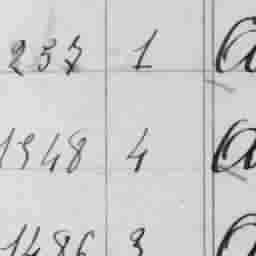 237 1 a
1948 4 a
1486 3